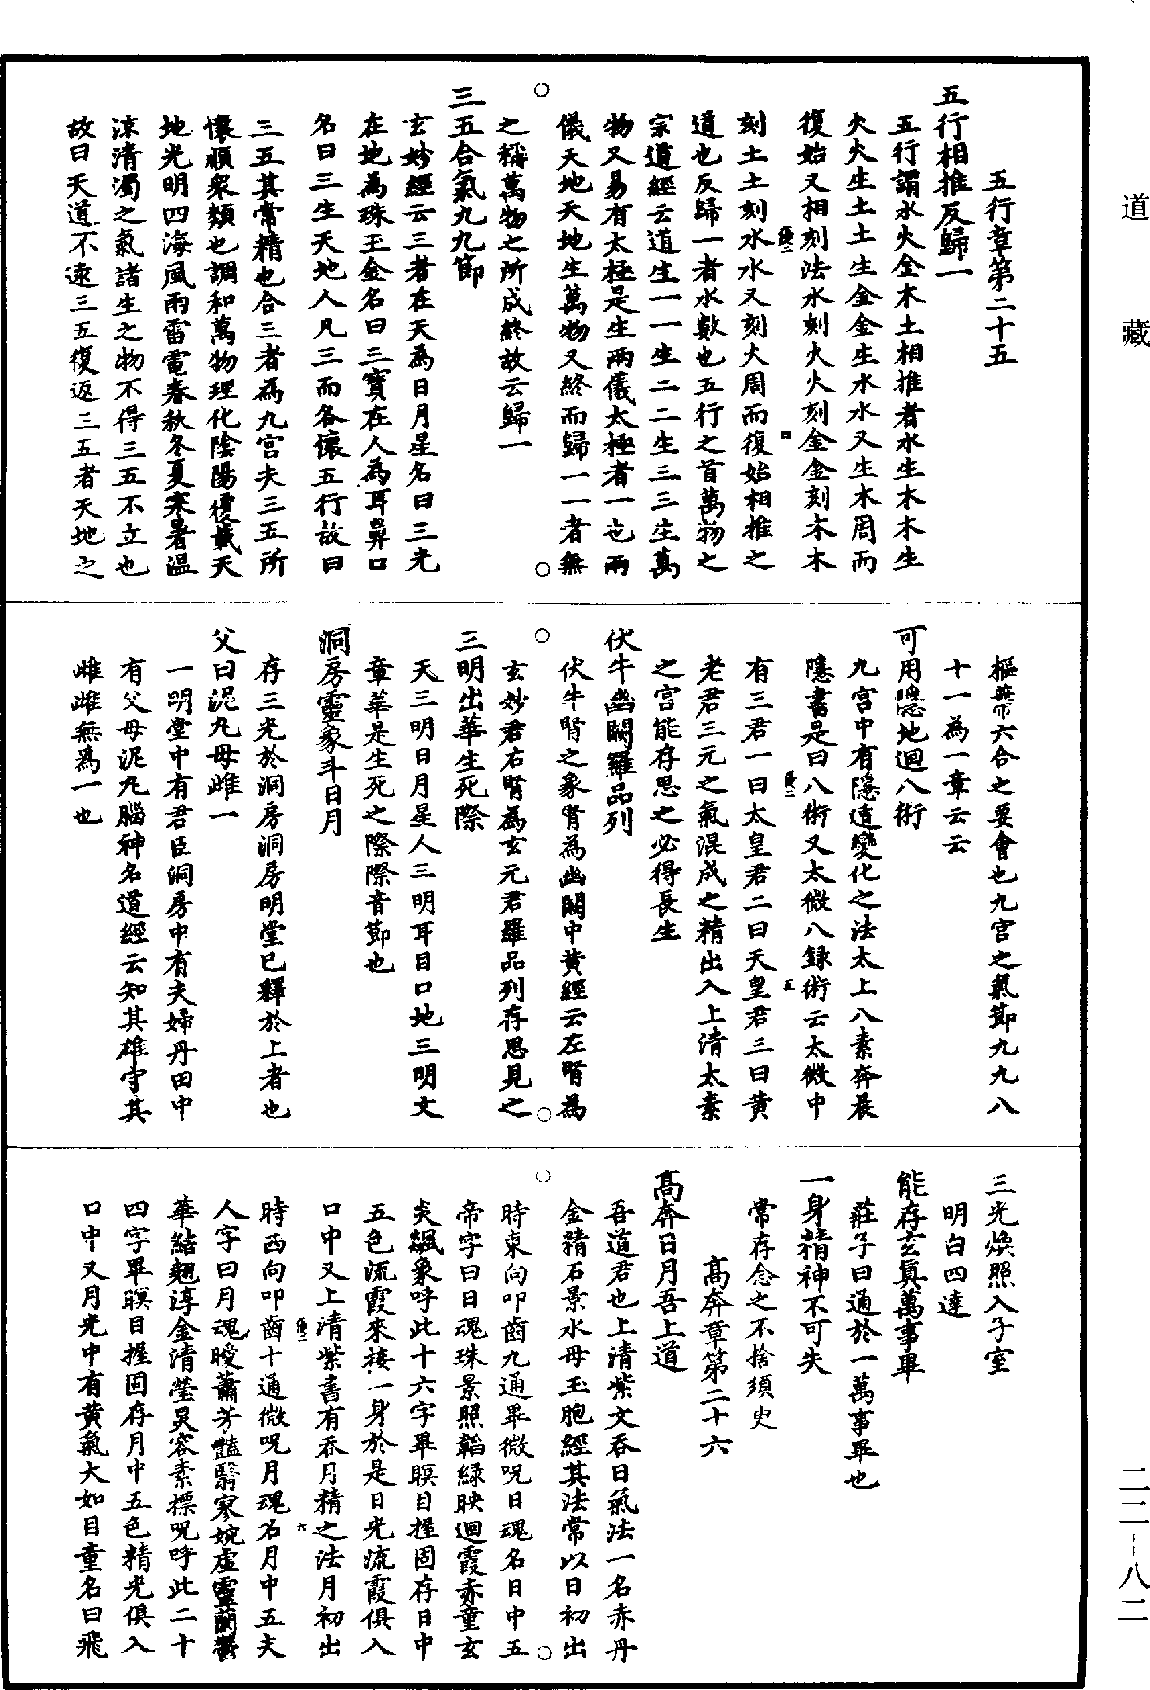 道藏
五行章第二十五
五行相推反歸一
五行謂水火金木土相推者水生木木生
火火生土土生金金生水水又生木周而
復始又相刻法水刻火火刻金金刻木木
刻土土刻水水又刻火周而復始相推之
道也反歸一者水數也五行之首萬物之
宗道經云道生一一生二二生三三生萬
物又易有太極是生兩儀太極者一也兩
儀天地天地生萬物又終而歸一一者無
之稱萬物之所成終故云歸一
三五合氣九九節
玄妙經云三者在天為日月星名曰三光
在地為珠玉金名曰三寶在人為耳鼻口
名曰三生天地人凡三而各懷五行故曰
三五其常精也合三者為九宮夫三五所
懷順衆類也調和萬物理化陰陽覆載天
地光明四海風雨雷電春秋冬夏寒暑溫
涼清濁之氣諸生之物不得三五不立也
故曰天道不遠三五復返三五者天地之
樞蒂六合之要會也九宮之氣節九九八
十一為一章云云
可用隱地迴八術
九宮中有隱遁變化之法太上八素奔晨
隱書是曰八術又太微八錄術云太微中
有三君一曰太皇君二曰天皇君三曰黃
老君三元之氣混成之精出入上清太素
之宮能存思之必得長生
伏牛幽闕羅品列
伏牛腎之象腎為幽闕中黃經云左腎為
玄妙君右腎為玄元君羅品列存思見之
三明出華生死際
天三明日月星人三明耳目口地三明文
章華是生死之際際音節也
洞房靈象斗日月
存三光於洞房洞房明堂已釋於上者也
父曰泥丸母雌一
一明堂中有君臣洞房中有夫婦丹田中
有父母泥丸腦神名道經云知其雄守其
雌雌無為一也
三光煥照入子室
明白四達
能存玄真萬事畢
莊子曰通於一萬事畢也
一身精神不可失
常存念之不捨須臾
高奔章第二十六
高奔日月吾上道
吾道君也上清紫文吞日氣法一名赤丹
金精石景水母玉胞經其法常以日初出
時東向叩齒九通畢微呪日魂名日中五
帝字曰日魂珠景照韜綠映迴霞赤童玄
炎飇象呼此十六字畢瞑目握固存日中
五色流霞來接一身於是日光流霞俱入
口中又上清紫書有吞月精之法月初出
時西向叩齒十通微呪月魂名月中五夫
人字曰月魂曖蕭芳豔翳寥婉虛靈蘭鬱
華結翹淳金清瑩炅容素標呪呼此二十
四字畢瞑目握固存月中五色精光俱入
口中又月光中有黃氣大如目童名曰飛
二二-八二